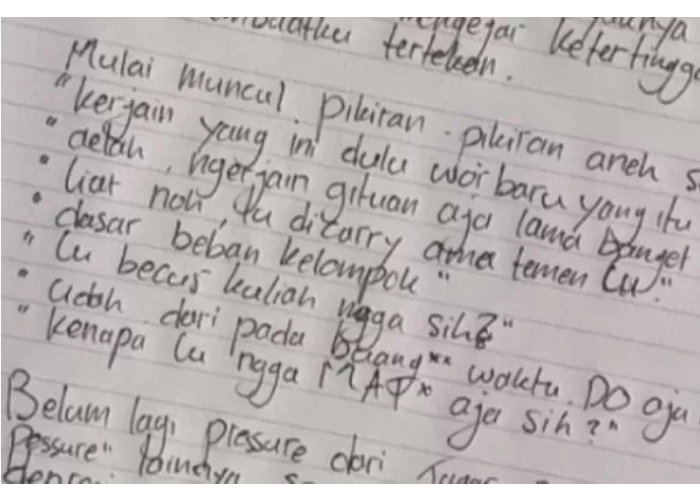 mengejar
tertekan. ketertingga
Mulai muncul pikiran-pikiran aneh s
"kerjain yang ini dulu woi baru yang itu
"aelah, ngerjain gituan aja lama banget
"liat noh, lu dicarry ama temen lu."
"dasar beban kelompok"
"Lu becus kuliah ngga sih?"
"udah dari pada buang** waktu. DO aja
"kenapa lu ngga MAT* aja sih?"
Belum lagi pressure dari
Pessure" lainnya